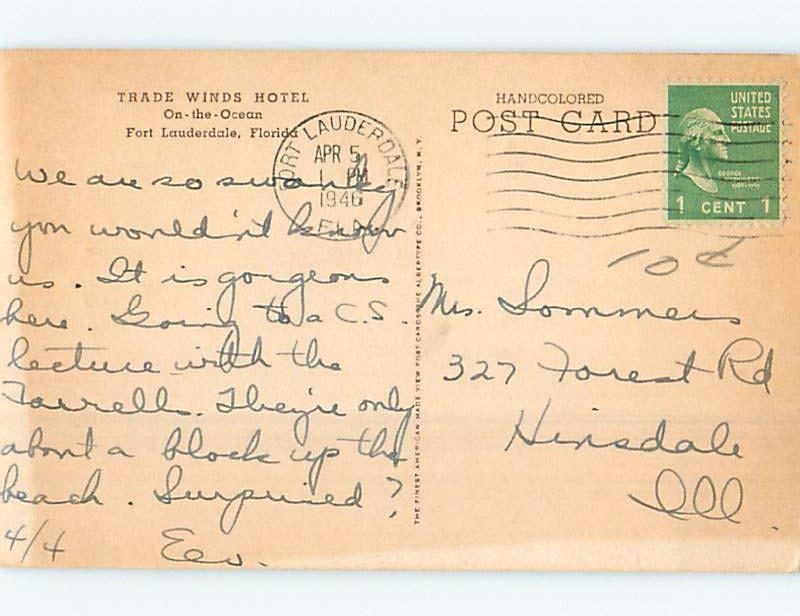 TRADE WINDS HOTEL
On-the-Ocean
Fort Lauderdale, Florida
We are so swanky
you wouldn't know
us. It is gorgeous
here. Going to a C.S.
lecture with the
Farrells. They're only
about a block up the
beach. Surprised?
4/4 Eev.
FORT LAUDERDALE
APR 5
1 PM
1946
FLA
THE FINEST AMERICAN MADE VIEW POST CARDS THE ALBERTYPE CO., BROOKLYN, N. Y.
HANDCOLORED
POST CARD
UNITED
STATES
POSTAGE
GEORGE
WASHINGTON
1789-1797
1 CENT 1
10¢
Mrs. Sommers
327 Forest Rd
Hinsdale
Ill.